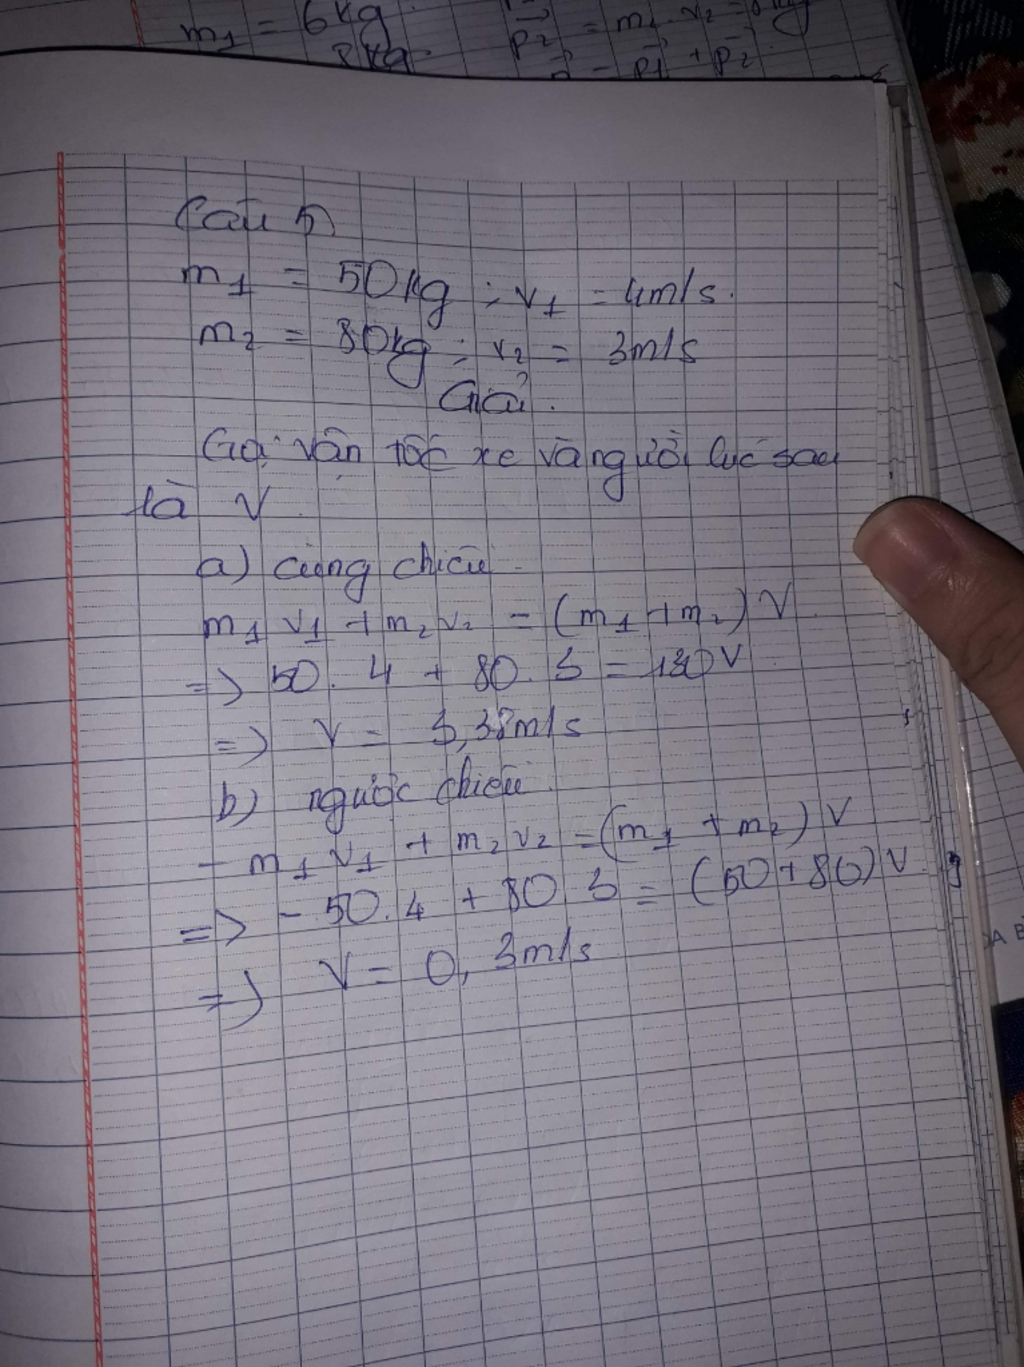 m₁ = 6kg
p₂ = m₂ . v₂ =
8kg
p₁ + p₂
Câu 5
m₁ = 50kg ; v₁ = 4m/s.
m₂ = 80kg ; v₂ = 3m/s
Giải.
Gọi vận tốc xe và người lúc sau
là V
a) cùng chiều
m₁ v₁ + m₂ v₂ = (m₁ + m₂) V
=> 50 . 4 + 80 . 3 = 130V
=> V = 3,38m/s
b) ngược chiều
- m₁ v₁ + m₂ v₂ = (m₁ + m₂) V
=> - 50.4 + 80 . 3 = (50 + 80) V
=> V = 0,3m/s